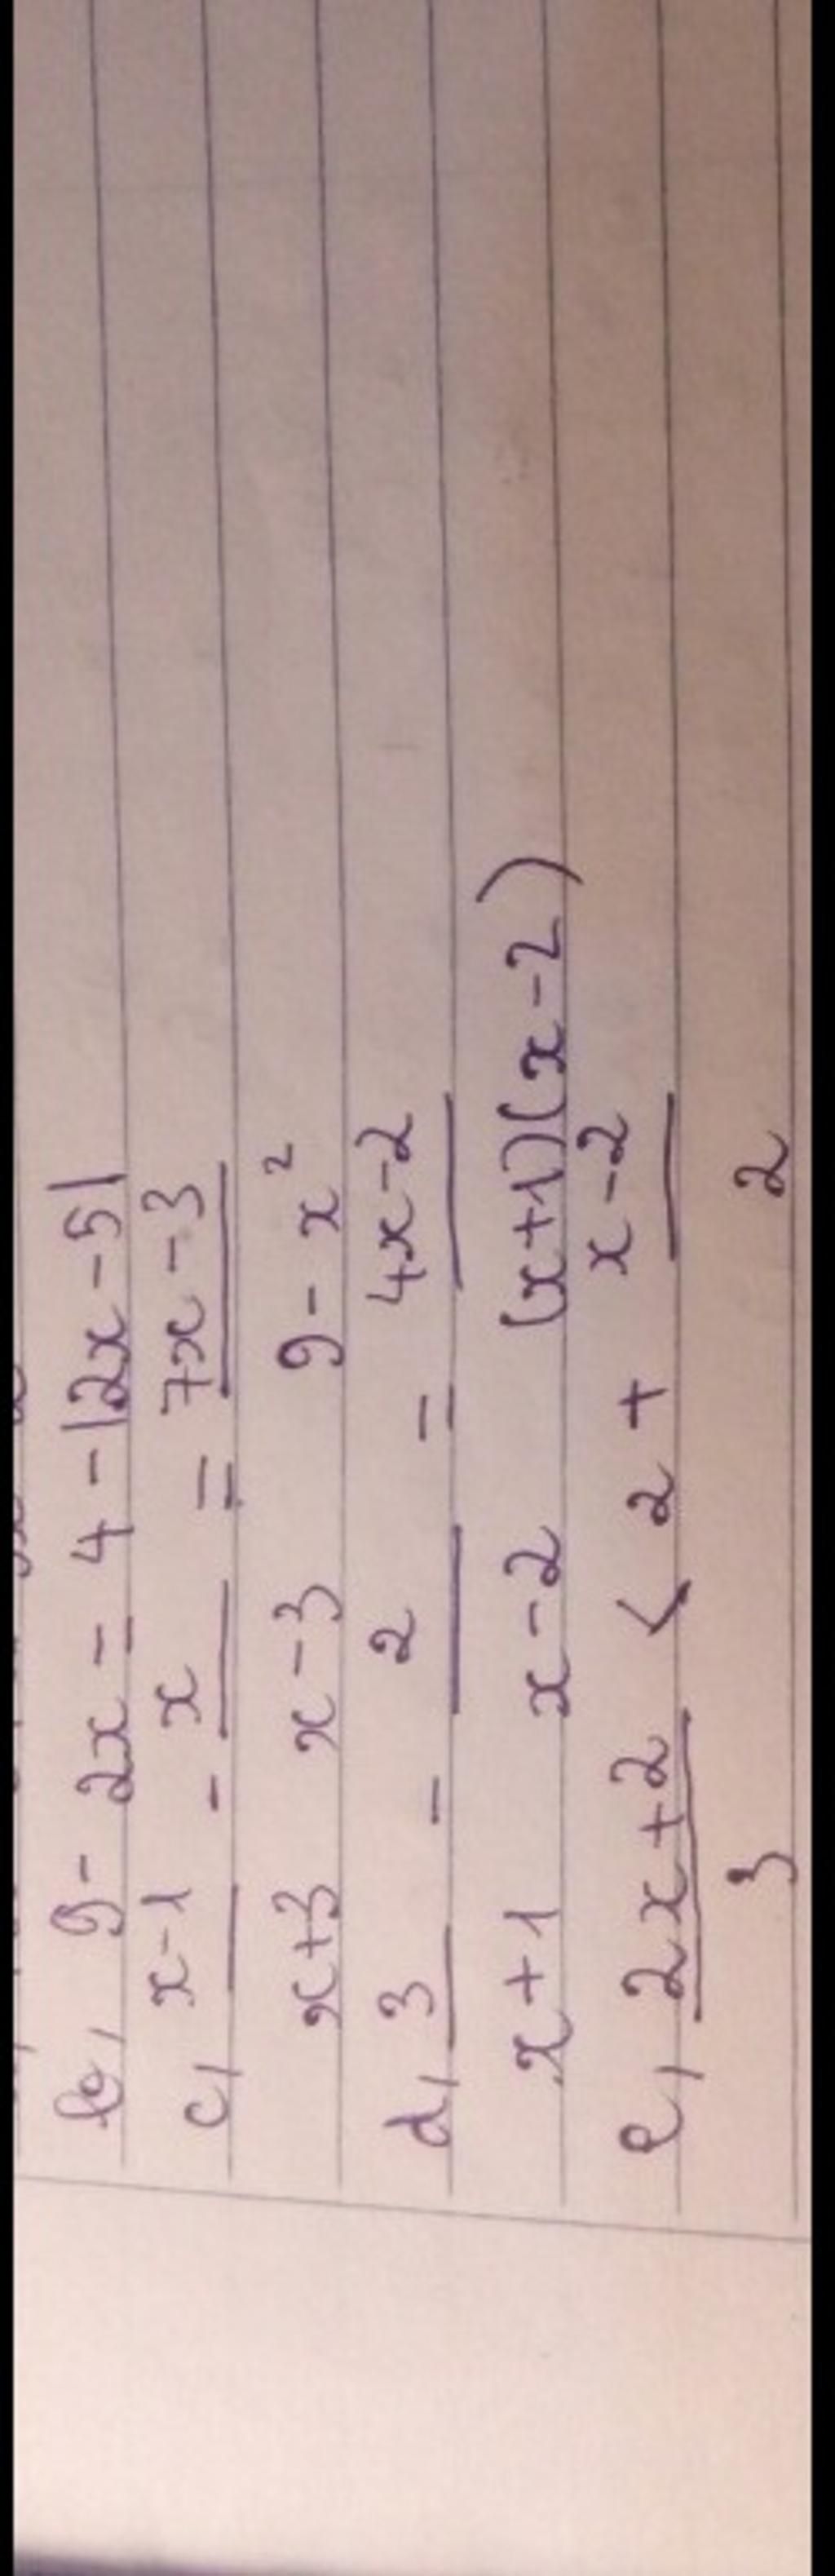 b, 9 - 2x = 4 - |2x - 5|
c, x-1 / x+3 - x / x-3 = 7x-3 / 9-x²
d, 3 / x+1 - 2 / x-2 = 4x-2 / (x+1)(x-2)
e, 2x+2 / 3 < 2 + x-2 / 2